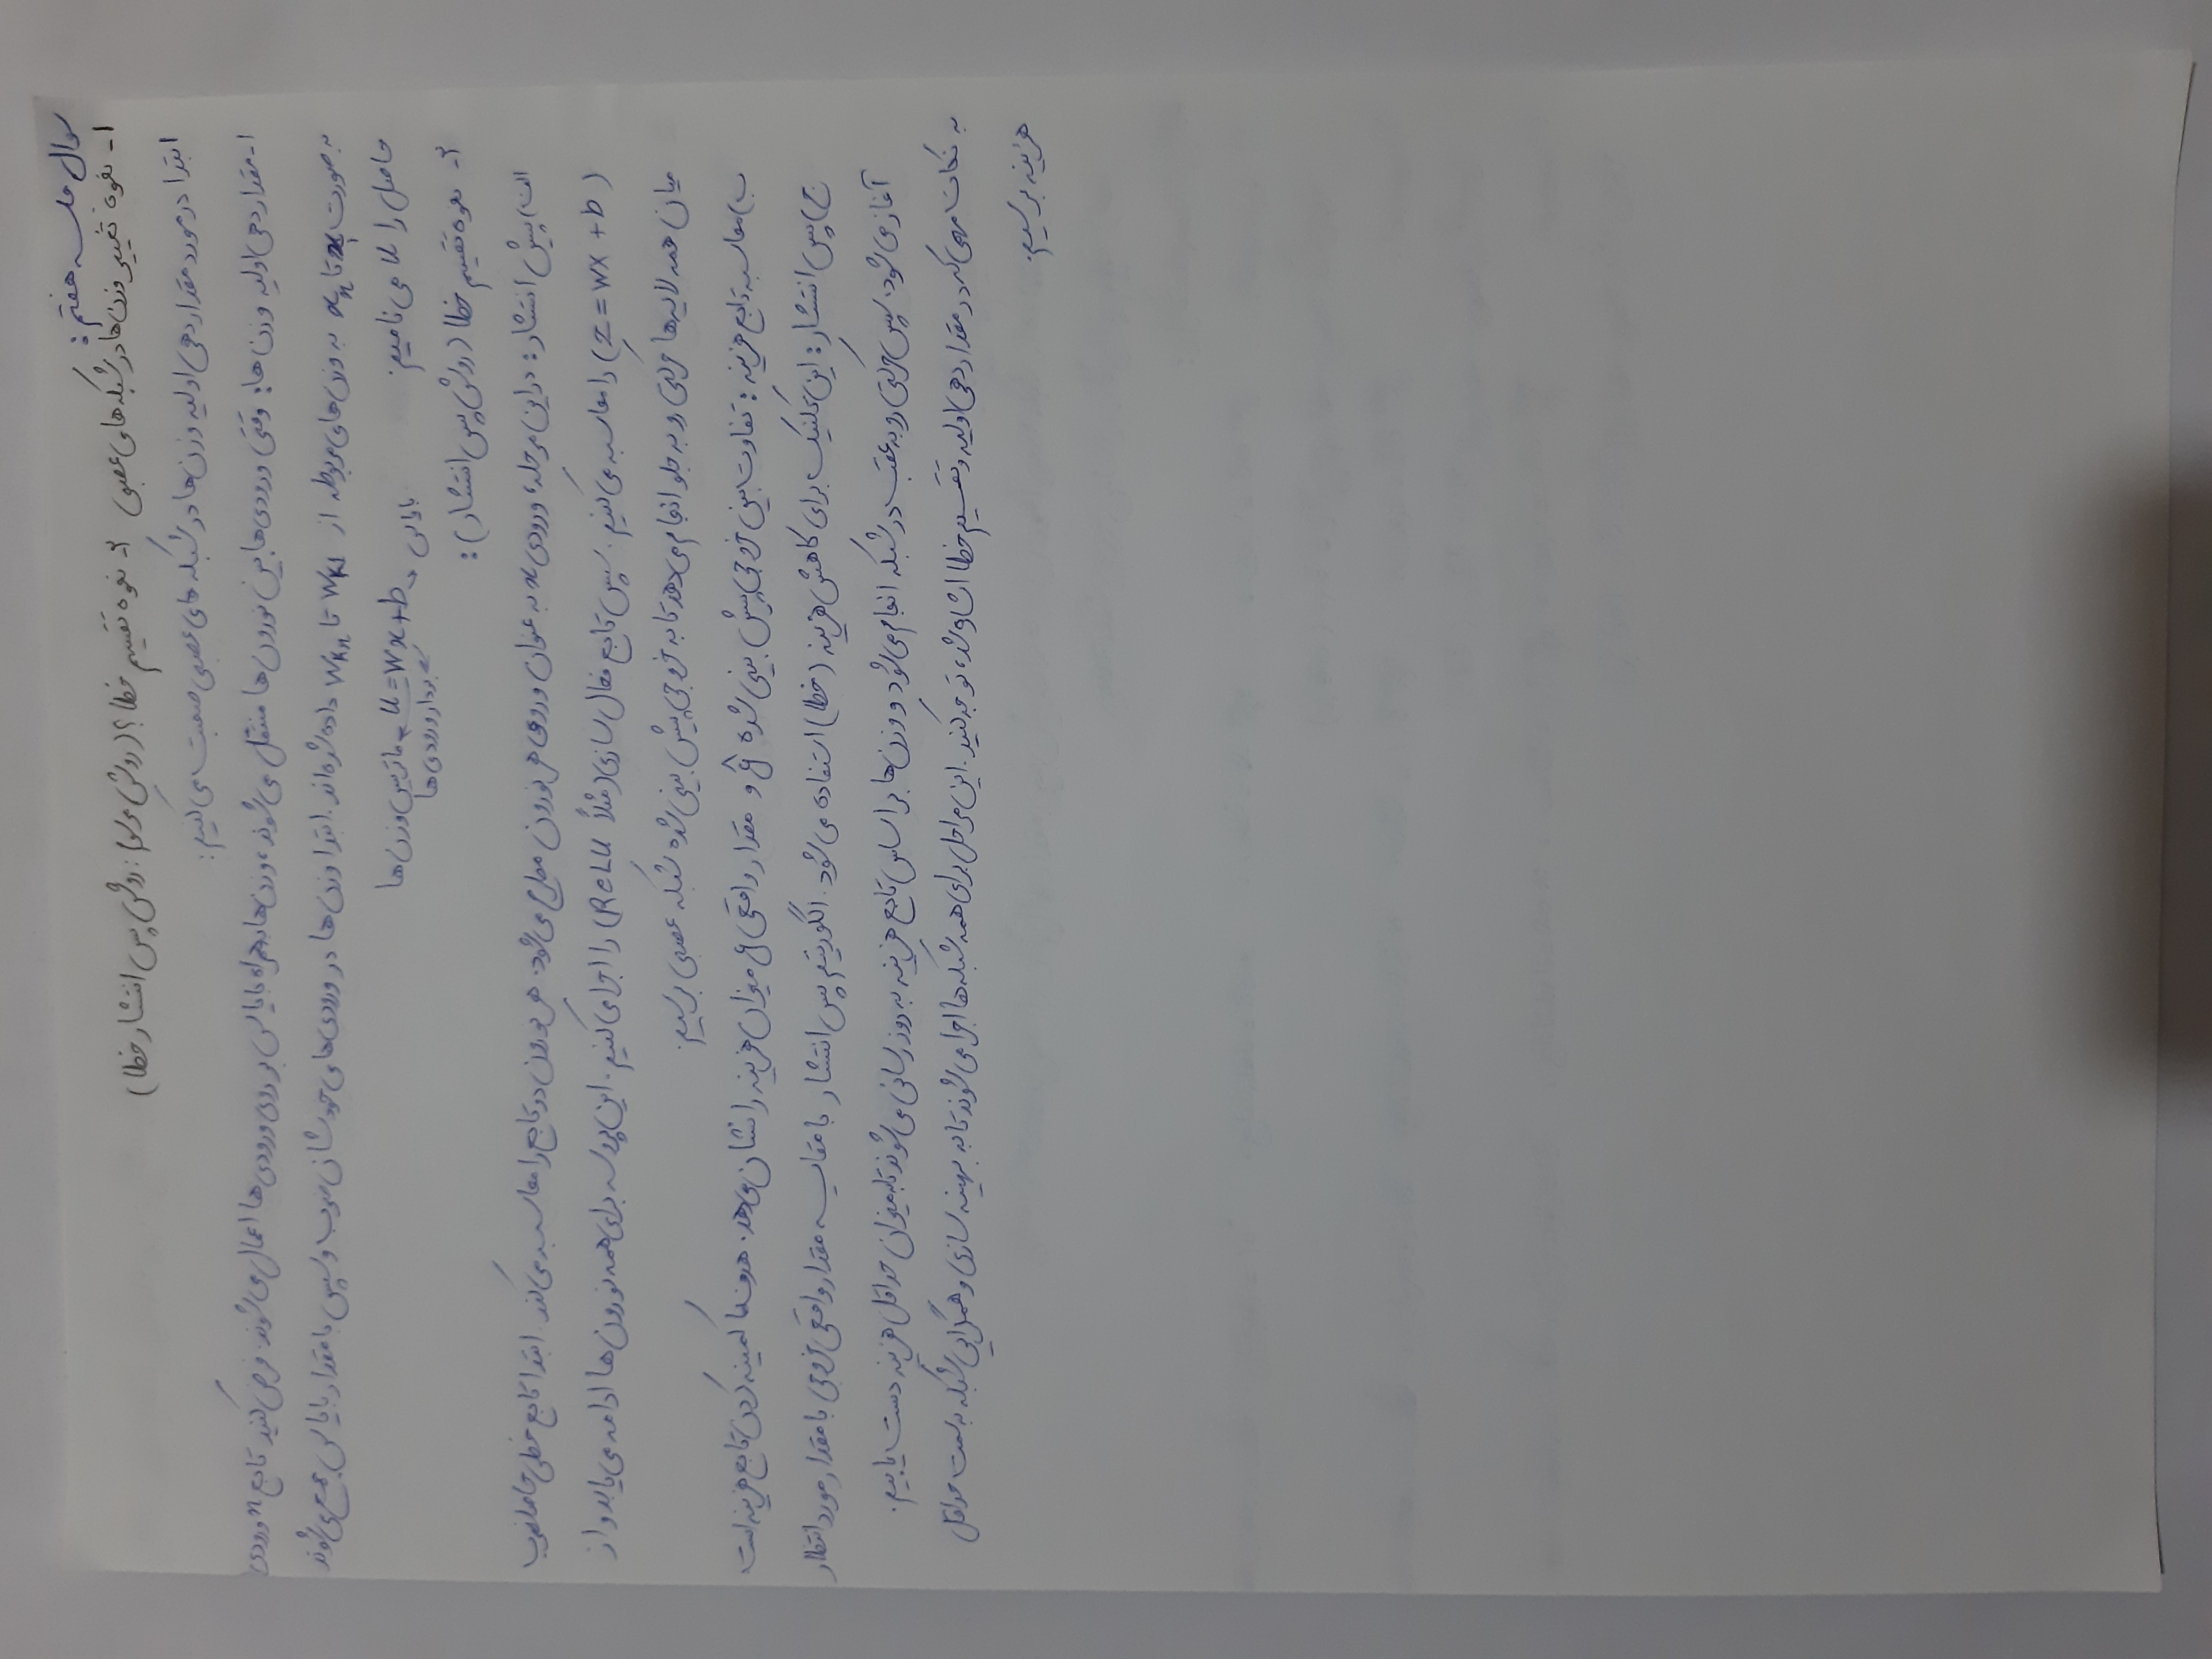 سوال جلسه هفتم:
۱- نحوه تغییر وزن‌ها در شبکه‌های عصبی ۲- نحوه تقسیم خطا؟ (روش مرسوم: روش پس انتشار خطا)
ابتدا در مورد مقداردهی اولیه وزن‌ها در شبکه های عصبی صحبت می‌کنیم:
۱- مقداردهی اولیه وزن ها: وقتی ورودی‌ها بین نورون‌ها منتقل می‌شوند، وزن‌ها به همراه بایاس بر روی ورودی‌ها اعمال می‌شوند. فرض کنید تابع n ورودی
به صورت x₁ تا xₙ به وزن‌های مربوطه از Wk1 تا Wkn داده شده‌اند. ابتدا وزن‌ها در ورودی‌های خودشان ضرب و سپس با مقدار بایاس جمع می‌شوند
حاصل را u می نامیم. بایاس ← u = Wx + b → ماتریس وزن ها
بردار ورودی ها
۲- نحوه تقسیم خطا (روش پس انتشار):
الف) پیش انتشار: در این مرحله، ورودی x به عنوان ورودی هر نورون مطرح می‌شود. هر نورون دو تابع را محاسبه می‌کند. ابتدا تابع خطی حاصلضرب
(z = wx + b) را محاسبه می‌کنیم. سپس تابع فعال سازی (مثلاً ReLU) را اجرا می‌کنیم. این پروسه برای همه نورون ها ادامه می‌یابد و از
میان همه لایه‌ها حرکتی رو به جلو انجام می‌دهد تا به خروجی پیش بینی شده شبکه عصبی برسیم.
ب) محاسبه تابع هزینه: تفاوت بین خروجی پیش بینی شده ŷ و مقدار واقعی y میزان هزینه را نشان می‌دهد. هدف ما کمینه کردن تابع هزینه است
ج) پس انتشار: این تکنیک برای کاهش هزینه (خطا) استفاده می‌شود. الگوریتم پس انتشار با مقایسه مقدار واقعی خروجی با مقدار مورد انتظار
آغاز می‌شود. سپس حرکتی رو به عقب در شبکه انجام می‌شود و وزن‌ها بر اساس تابع هزینه به روز رسانی می‌شوند تا به میزان حداقل هزینه دست یابیم.
به نکات مهمی که در مقداردهی اولیه و تقسیم خطا اشاره شد، توجه کنید. این مراحل برای همه شبکه‌ها اجرا می‌شوند تا به بهینه سازی و همگرایی شبکه به سمت حداقل
هزینه برسیم.